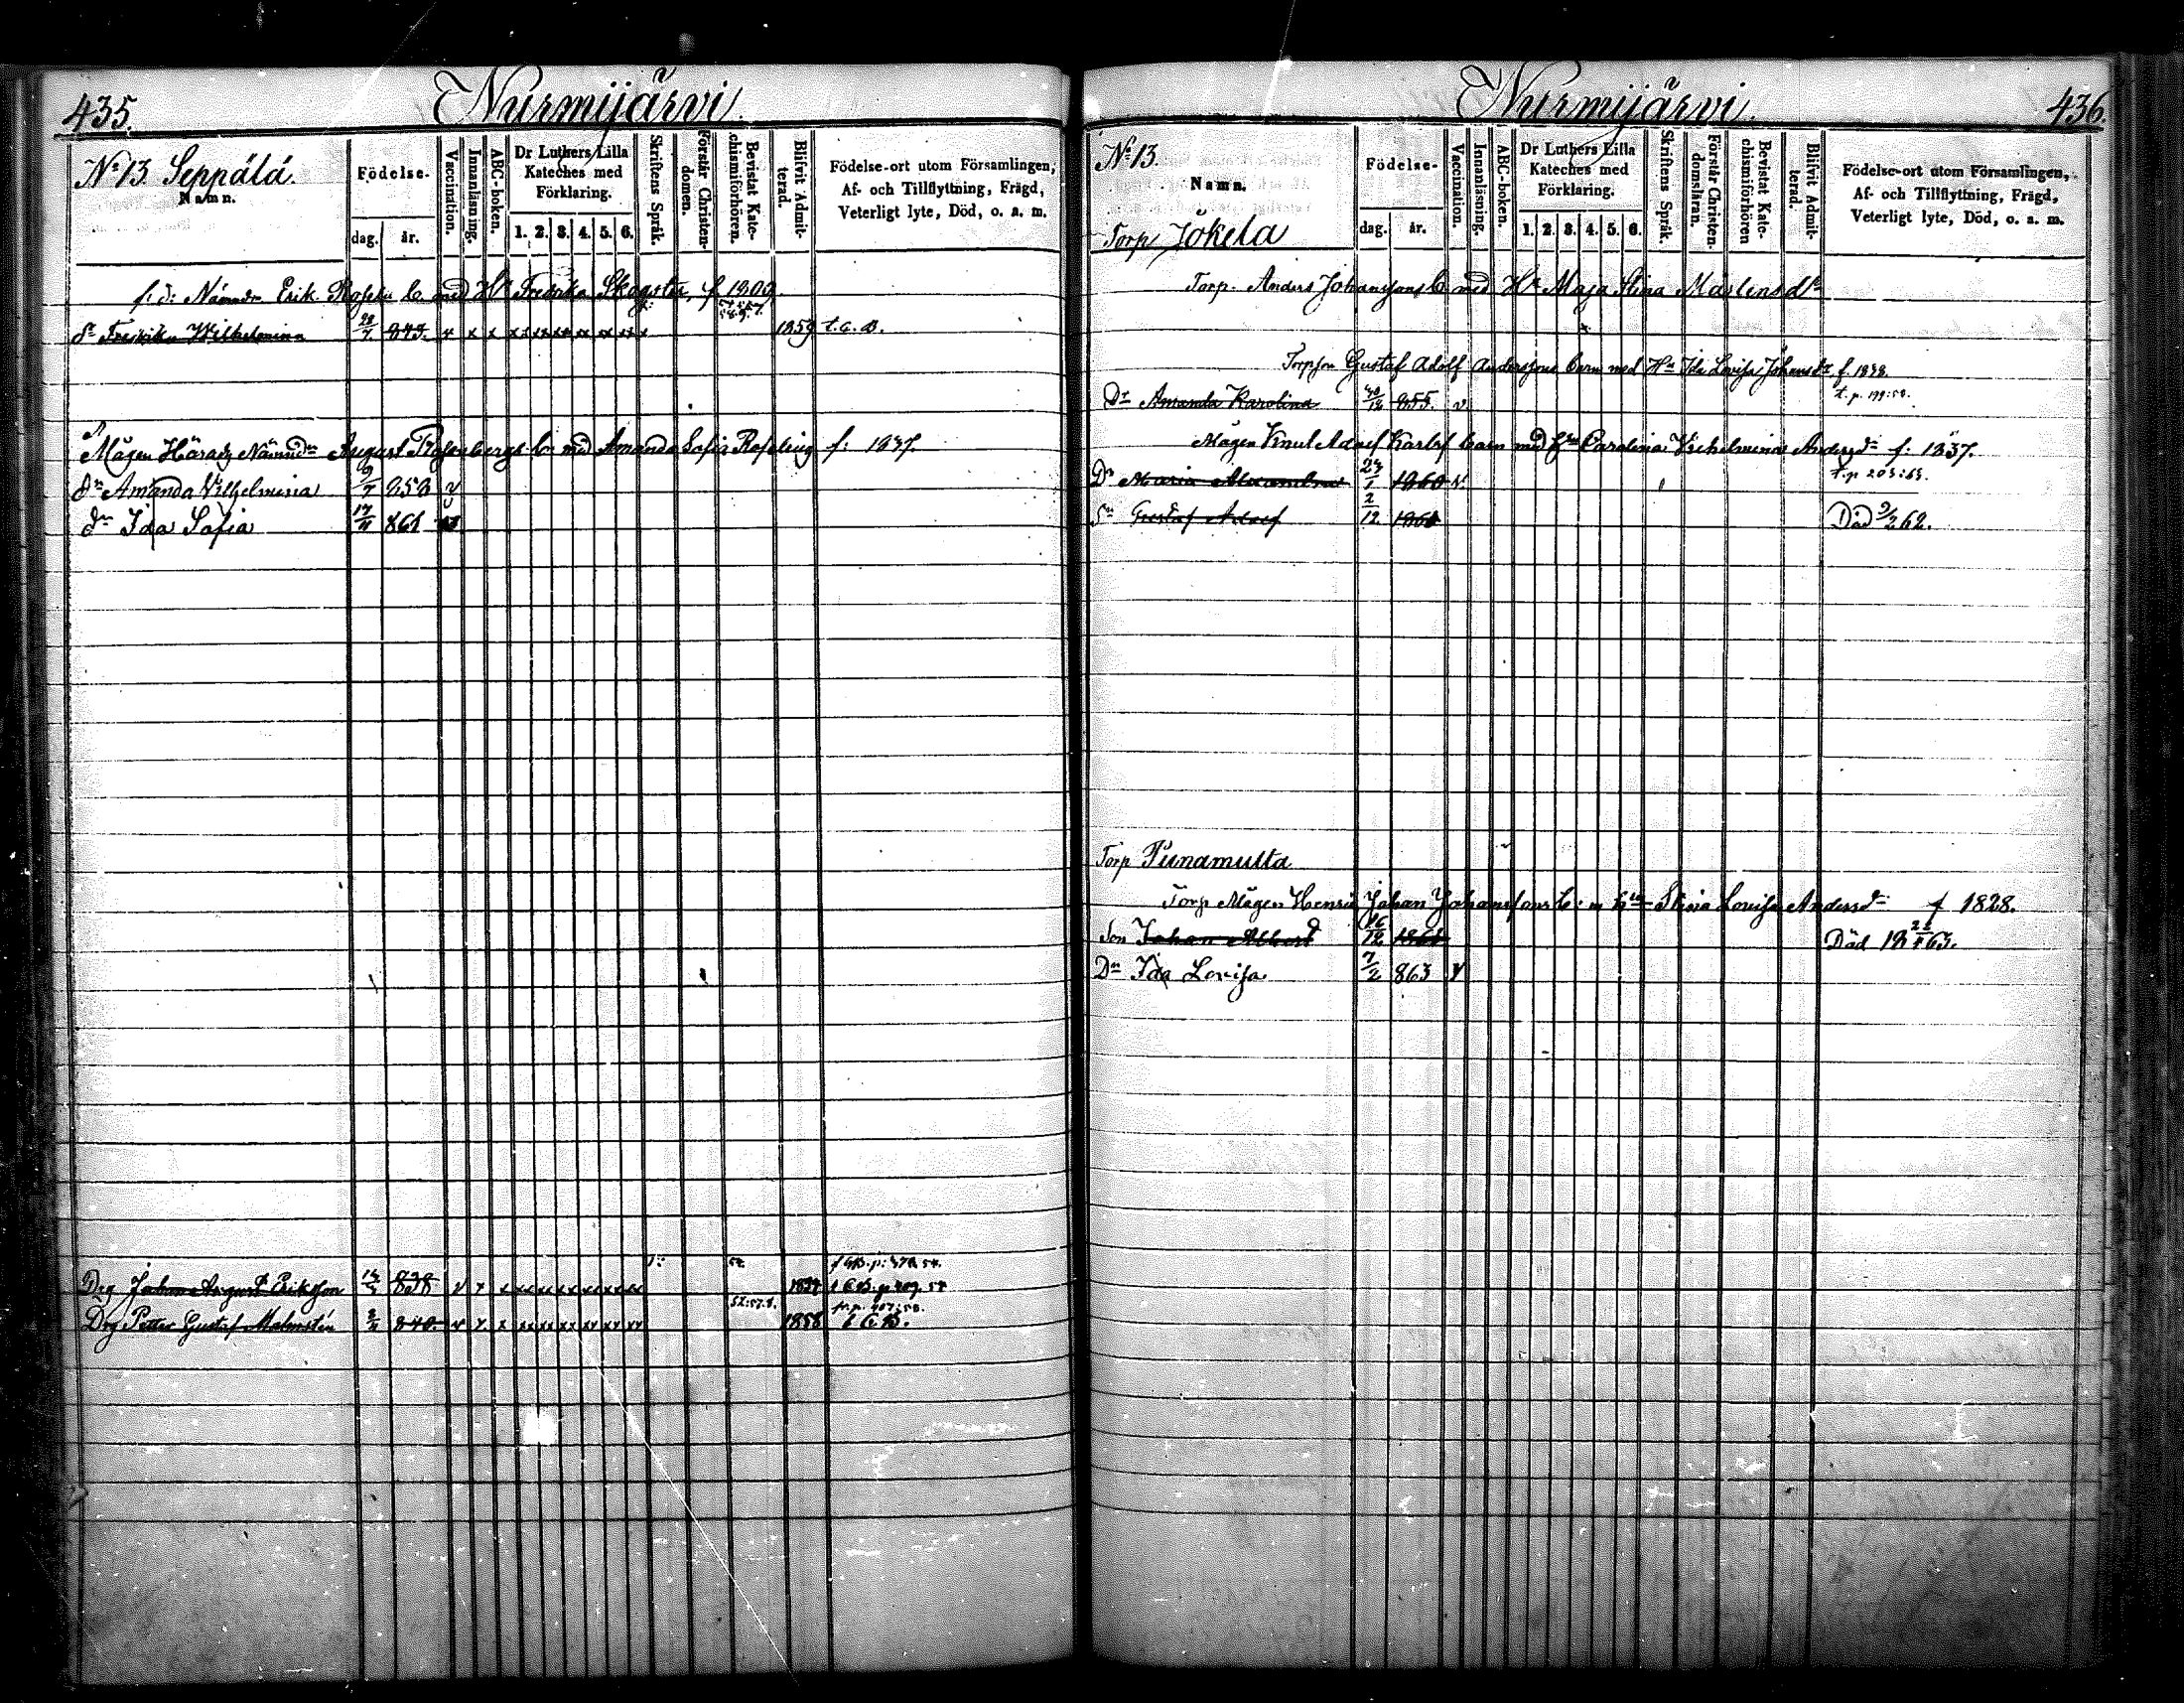 435. Nurmijärvi.
No 13 Seppälä.
Namn.
Födelse-
dag. år.
Vaccination.
Innanläsning.
ABC-boken.
Dr Luthers Lilla Kateches med Förklaring.
1. 2. 3. 4. 5. 6.
Skriftens Språk.
Förstår Christendomen.
Bevistat Katechismiförhören.
Blifvit Admitterad.
Födelse-ort utom Församlingen, Af- och Tillflyttning, Frägd, Veterligt lyte, Död, o. a. m.
f: d: Nämndn Erik Roselin b. med Hu Fredrika Skogster, f 1800.
Dr Fredrika Wilhelmina 843. x x x xx xx xx xx xx xx x 1859 t. C. B.
Mågen Härads Nämndn August Rosenbergs b. med Amanda Sofia Roseling f: 1837.
dr Amanda Vilhelmina 9/7 858 v
dr Ida Sofia 17/11 861
f CB. p: 378 54.
Drg Johan August Eriksson 838 v x x xx xx xx xx xx xx t CB. p 409. 54
52:57.8. fr. p. 407:58.
Drg Petter Gustaf Malmstén 840. v x x xx xx xx xx xx xx 1858 t CB.
Nurmijärvi. 436.
No 13.
Namn.
Torp Jokela
Födelse-
dag. år.
Vaccination.
Innanläsning.
ABC-boken.
Dr Luthers Lilla Kateches med Förklaring.
1. 2. 3. 4. 5. 6.
Skriftens Språk.
Förstår Christendomsläran.
Bevistat Katechismiförhören
Blifvit Admitterad.
Födelse-ort utom Församlingen, Af- och Tillflyttning, Frägd, Veterligt lyte, Död, o. a. m.
Torp. Anders Johanssons b. med Hu Maja Stina Mårtensdr
Torpson Gustaf Adolf Anderssons barn med Hu Ida Lovisa Johansdr, f. 1838.
Dr Amanda Karolina 855. v t. p. 199:58.
Mågen Knut Adolf Karlss barn med Hu Carolina Vilhelmina Andersdr f: 1837.
Dr Maria Alexandra 24/1 1860 v t. p 203:63.
Sn Gustaf Adolf 2/12 1861 Död 9/2 62.
Torp Punamulta
Torp Mågen Henrik Johan Johanssons b. m hu Stina Lovisa Andersdr f 1828.
Son Johan Albert 16/12 1861 Död 63.
Dr Ida Lovisa 7/2 863 v